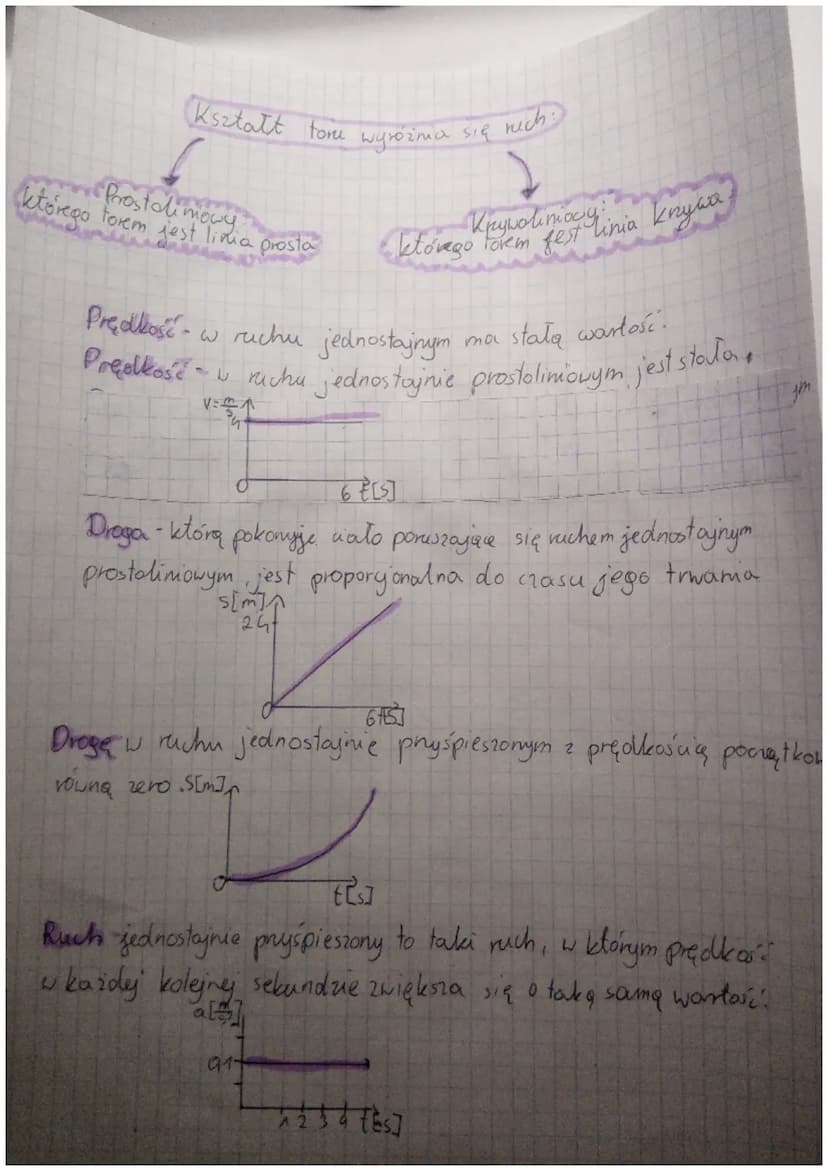 Kształt toru wyróżnia się ruch:
Prostoliniowy
którego torem jest linia prosta
Krzywoliniowy:
którego torem jest linia krzywa
Prędkość - w ruchu jednostajnym ma stałą wartość.
Prędkość - w ruchu jednostajnie prostoliniowym jest stała.
ym
V = m/s
4
0
6 t[s]
Droga - którą pokonuje ciało poruszające się ruchem jednostajnym
prostoliniowym, jest proporcjonalna do czasu jego trwania
S[m]
24
0
6 t[s]
Drogę w ruchu jednostajnie przyśpieszonym z prędkością początkow
równą zero. S[m]
0
t[s]
Ruch jednostajnie przyśpieszony to taki ruch, w którym prędkość
w każdej kolejnej sekundzie zwiększa się o taką samą wartość.
1 2 3 4 t[s]